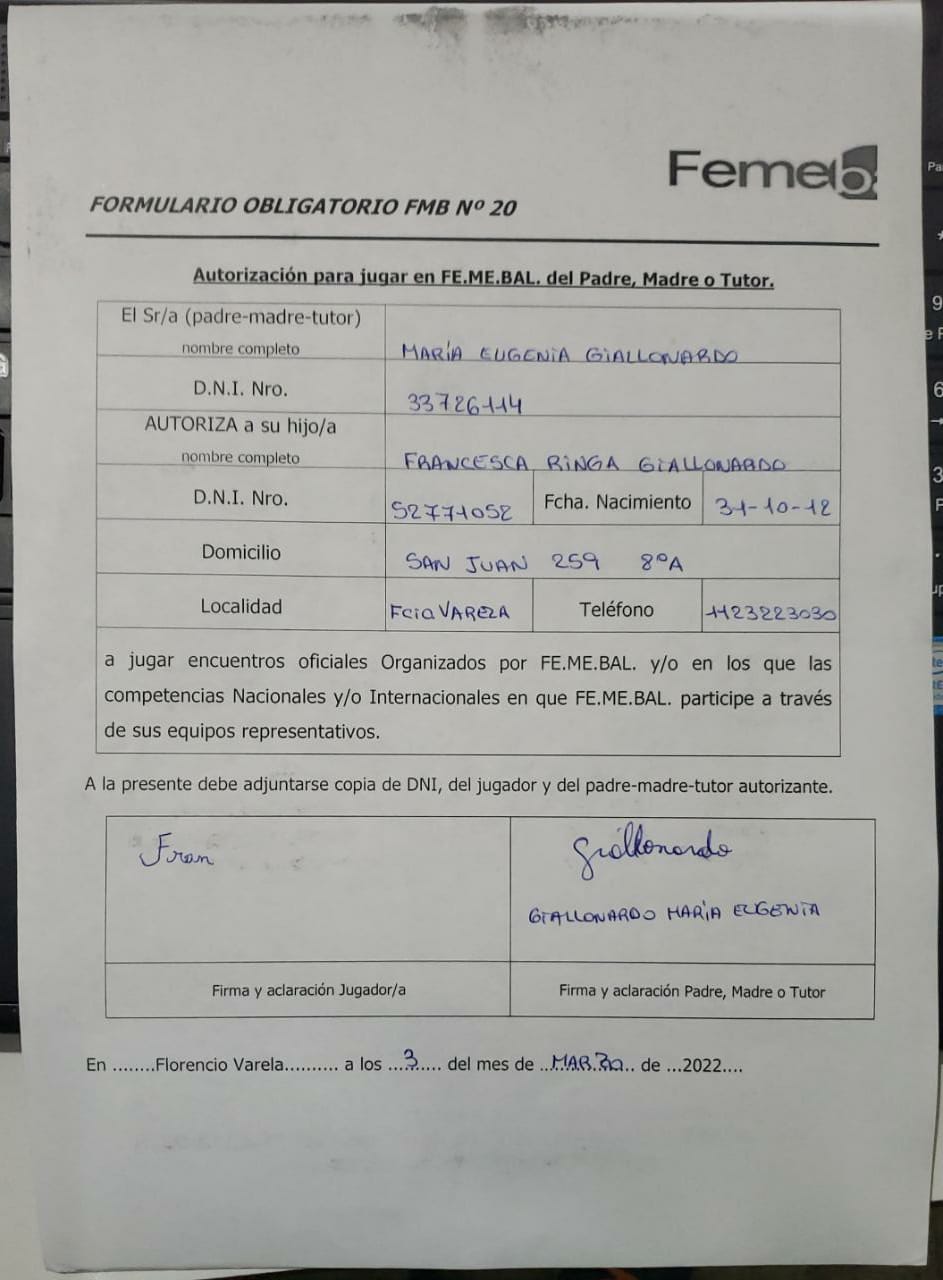 Femeb
FORMULARIO OBLIGATORIO FMB Nº 20
Autorización para jugar en FE.ME.BAL. del Padre, Madre o Tutor.
El Sr/a (padre-madre-tutor)
nombre completo
MARÍA EUGENIA GIALLONARDO
D.N.I. Nro.
33726114
AUTORIZA a su hijo/a
nombre completo
FRANCESCA RINGA GIALLONARDO
D.N.I. Nro.
52771052
Fcha. Nacimiento
31-10-12
Domicilio
SAN JUAN 259 8ºA
Localidad
Fcio VARELA
Teléfono
1123223030
a jugar encuentros oficiales Organizados por FE.ME.BAL. y/o en los que las
competencias Nacionales y/o Internacionales en que FE.ME.BAL. participe a través
de sus equipos representativos.
A la presente debe adjuntarse copia de DNI, del jugador y del padre-madre-tutor autorizante.
Fran
Giallonardo
GIALLONARDO MARÍA EUGENIA
Firma y aclaración Jugador/a
Firma y aclaración Padre, Madre o Tutor
En ........Florencio Varela.......... a los ....3..... del mes de ..MARZO.. de ...2022....